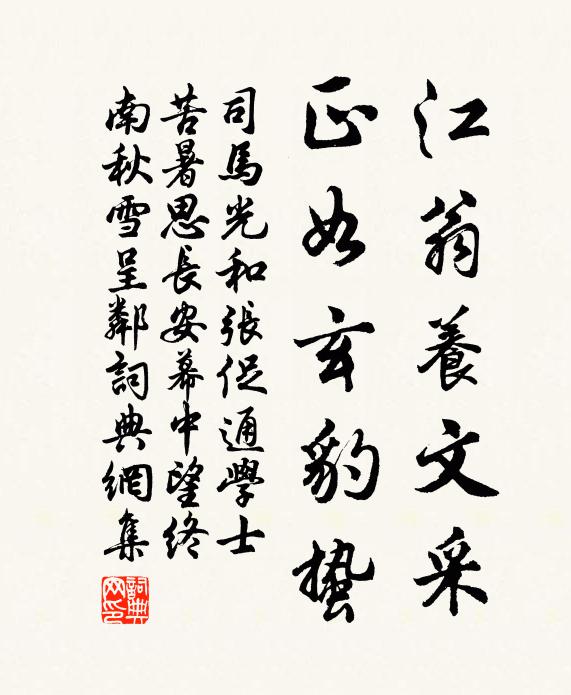 江翁養文采
正如玄豹蟄
司馬光和張促通學士
苦暑思長安幕中望終
南秋雪呈鄰詞典網集
詞典網印